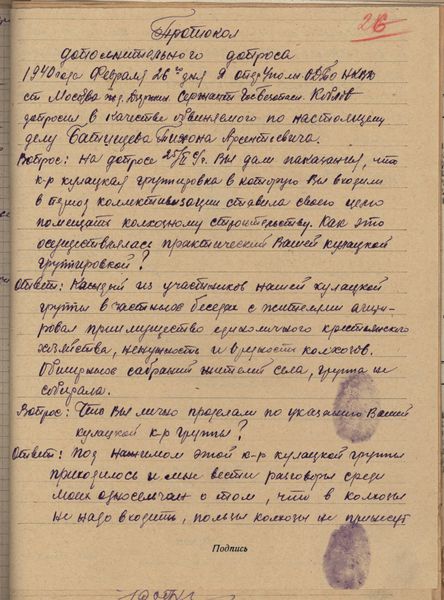 26
Протокол
дополнительного допроса
1940 года Февраля 26го дня Я опер/уполн ОДТО НКВД
ст Москва жд. Дзержин. Сержант Госбезопасн.
допросил в качестве обвиняемого по настоящему
делу Батищева Тихона Арсентьевича.
Вопрос: На допросе 25/II 40 г. Вы дали показания, что
к-р кулацкая группировка в которую Вы входили
в период коллективизации ставила своей целю
помешать колхозному строительству. Как это
осуществлялась практический Вашей кулацкой
группировкой?
Ответ: Каждый из участников нашей кулацкой
группы в частных беседах с жителями агити-
ровал приимущество единоличного крестьянского
хозяйства, ненужность и вредность колхозов.
Обширных собраний жителей села, группа не
собирала.
Вопрос: Что Вы лично проделали по указанию Вашей
кулацкой к-р группы?
Ответ: Под нажимом этой к-р кулацкой группы
приходилось и мне вести разговоры среди
моих односельчан о том, что в колхозы
не надо входить, пользы колхозы не принесут
Подпись